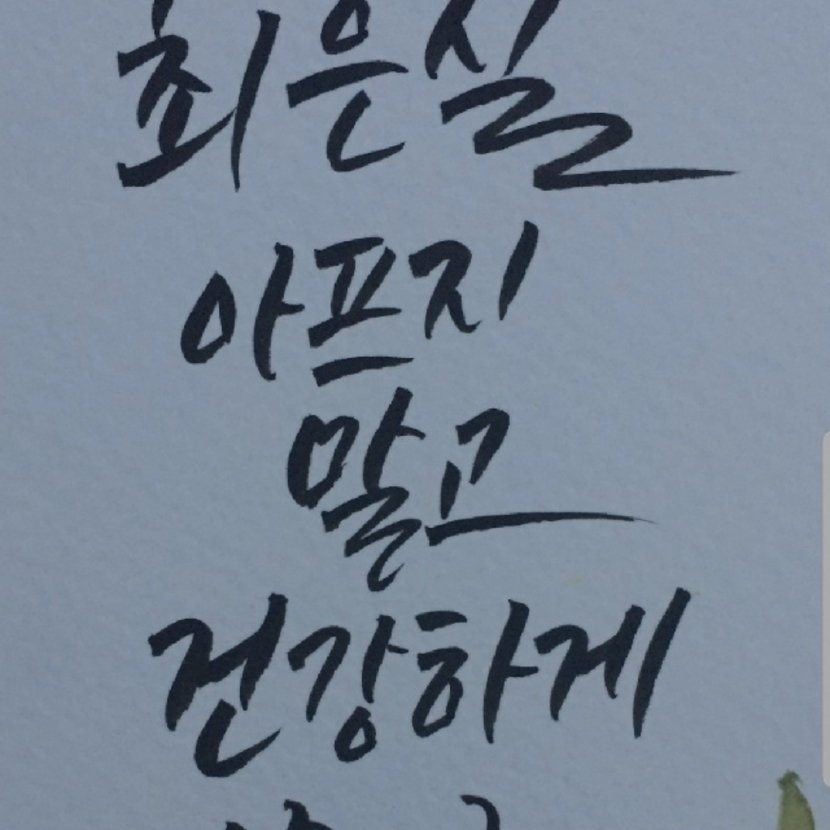 최은실
아프지
말고
건강하게